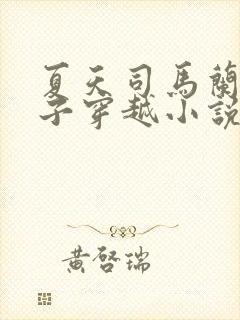 夏天司馬蘭
子穿越小說
黃啓瑞